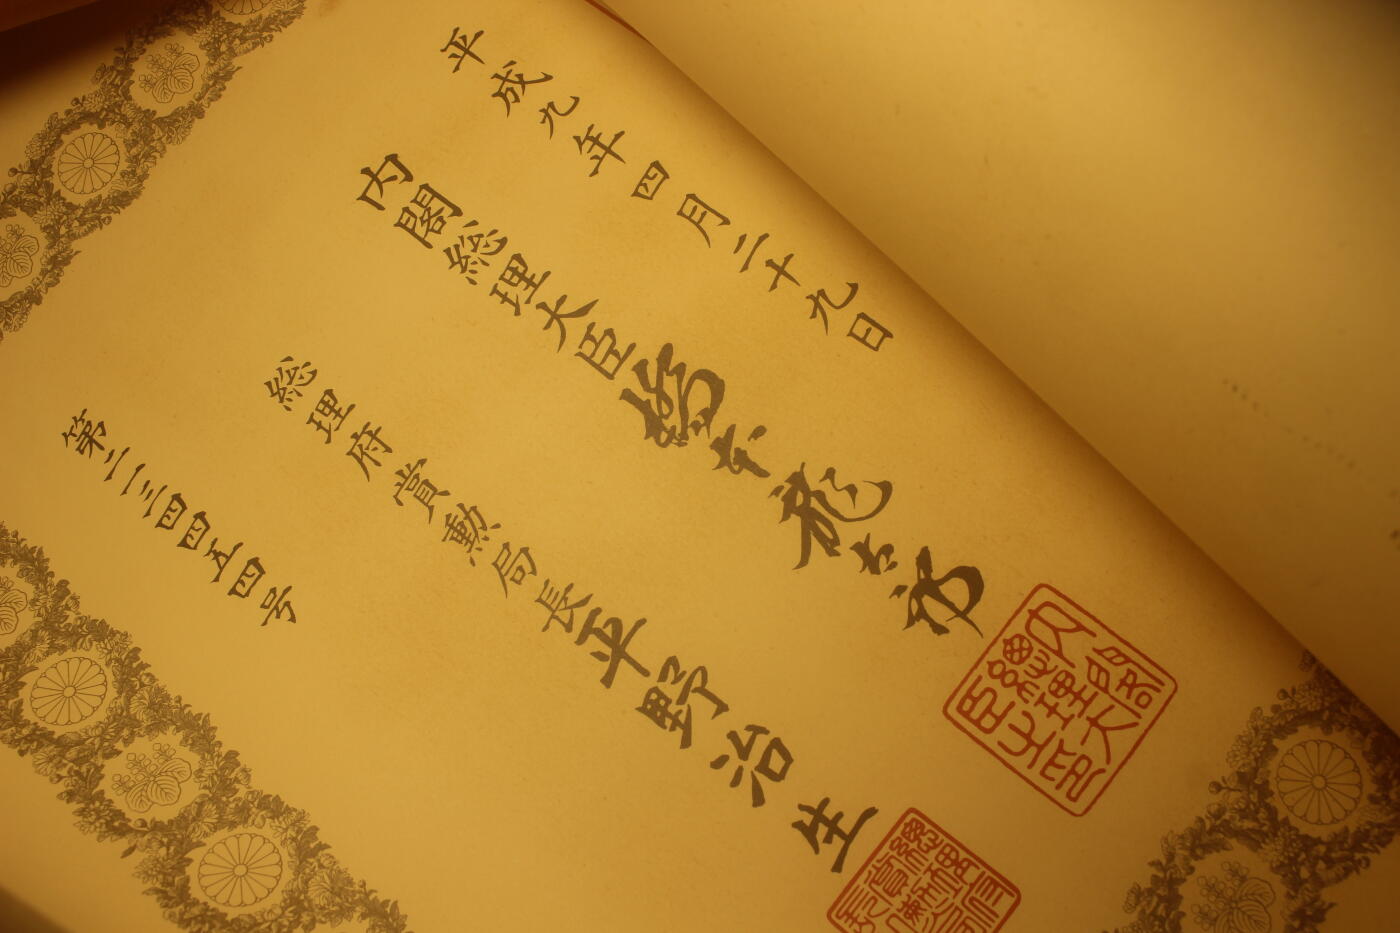 平成九年四月二十九日
内閣総理大臣橋本龍太郎
内閣
總理大
臣之印
総理府賞勲局長平野治生
第二三四四五四号